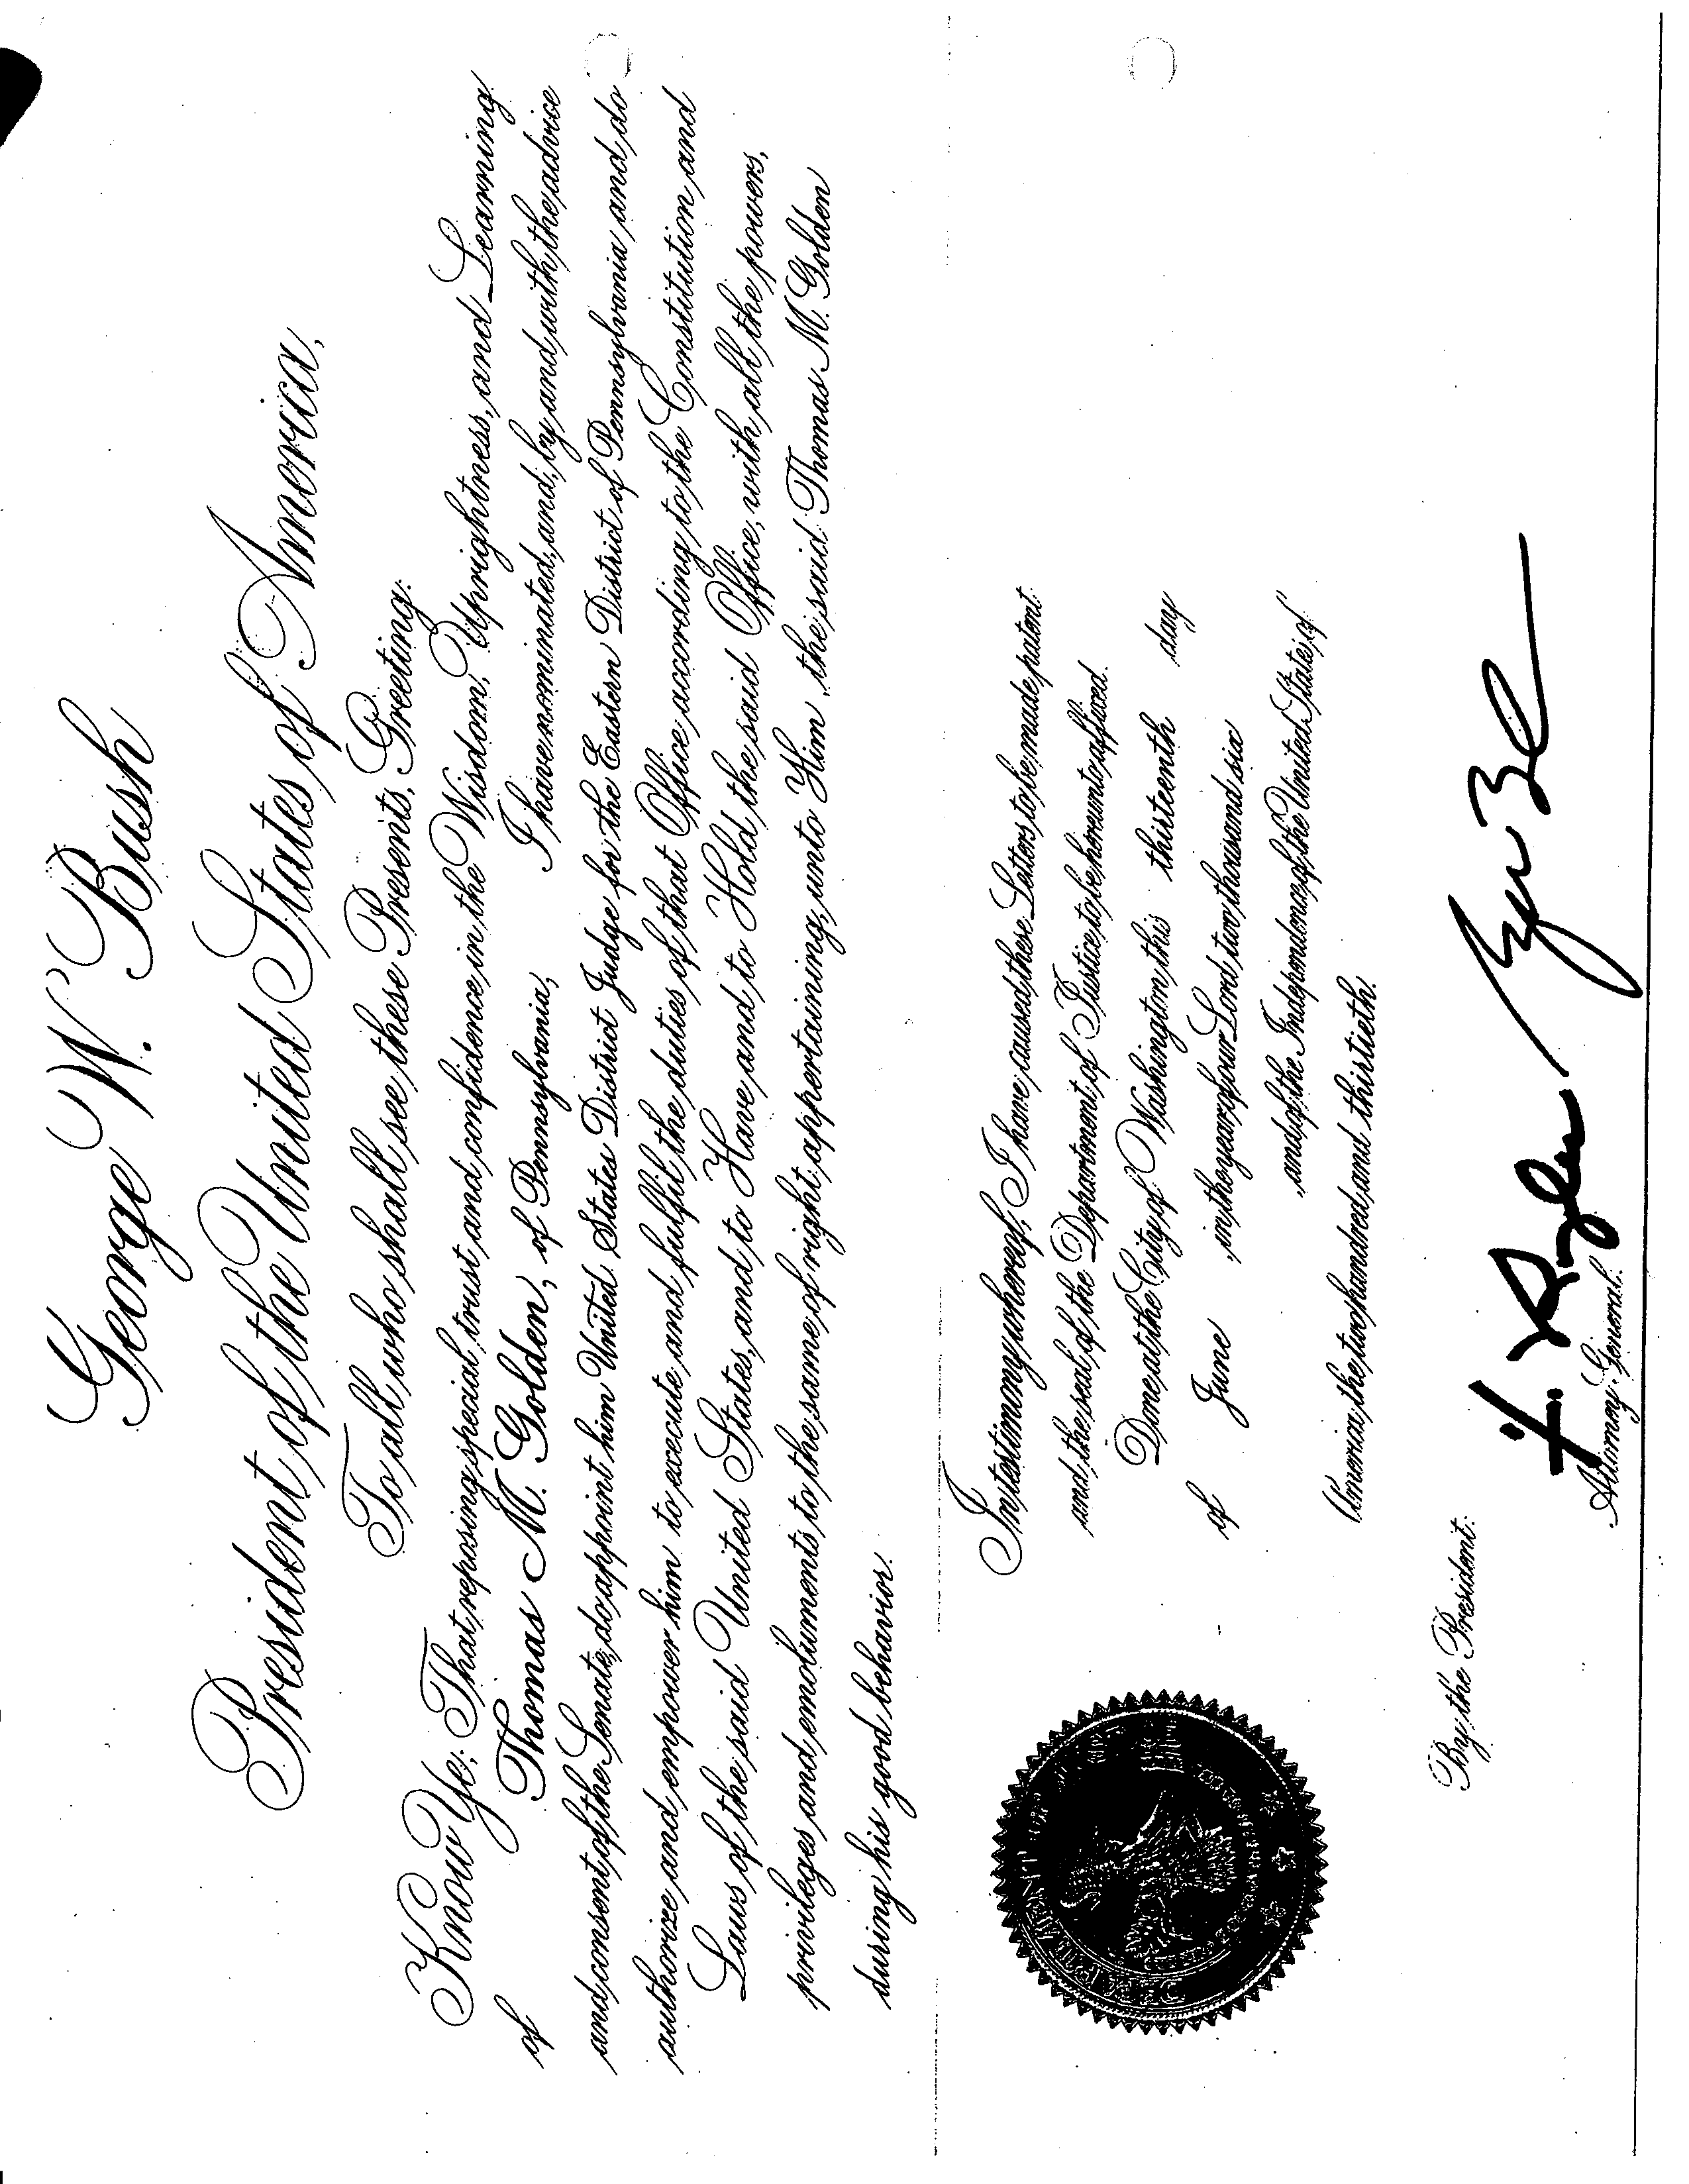 George W. Bush
President of the United States of America,
To all who shall see these Presents, Greeting:
Know Ye; That reposing special trust and confidence in the Wisdom, Uprightness, and Learning
of Thomas M. Golden, of Pennsylvania, I have nominated, and, by and with the advice
and consent of the Senate, do appoint him United States District Judge for the Eastern District of Pennsylvania and do
authorize and empower him to execute and fulfil the duties of that Office according to the Constitution and
Laws of the said United States, and to Have and to Hold the said Office, with all the powers,
privileges and emoluments to the same of right appertaining, unto Him, the said Thomas M. Golden
during his good behavior.
In testimony whereof, I have caused these Letters to be made patent
and the seal of the Department of Justice to be hereunto affixed.
Done at the City of Washington this thirteenth day
of June, in the year of our Lord two thousand six
, and of the Independence of the United States of
America the two hundred and thirtieth.
By the President:
Attorney General.